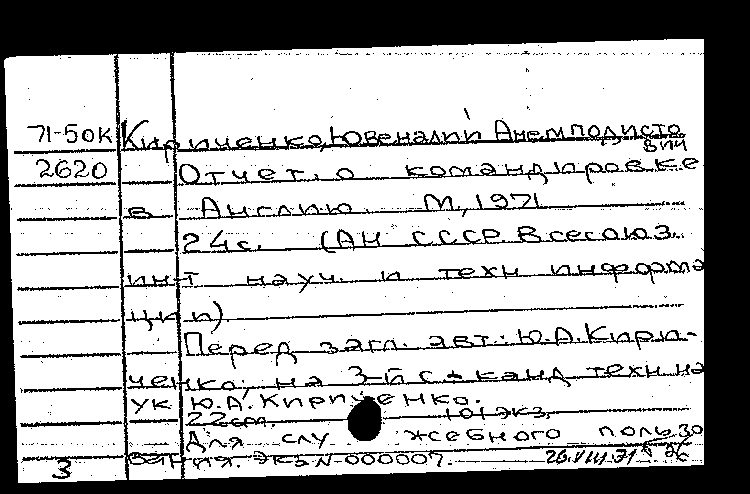 71-50К Кириченко, Ювеналий Анемподисто
вич
2620 Отчет о командировке
в Англию. М, 1971
24с. (АН СССР Всесоюз.
ин-т науч. и техн информа
ции)
Перед загл. авт.: Ю.А.Кири-
ченко; на 3-й с: канд техн на
ук Ю.А.Кириченко.
22см. 101экз.
Для служебного пользо
3 вания. Экз N-000007. 26.VIII.71